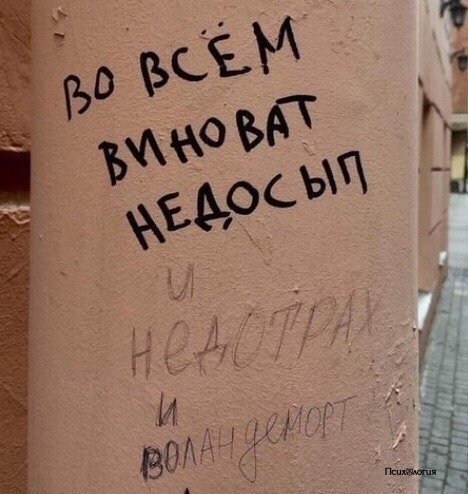 ВО ВСЁМ
ВИНОВАТ
НЕДОСЫП
И
НЕДОТРАХ
И
ВОЛАНДЕМОРТ
Психология